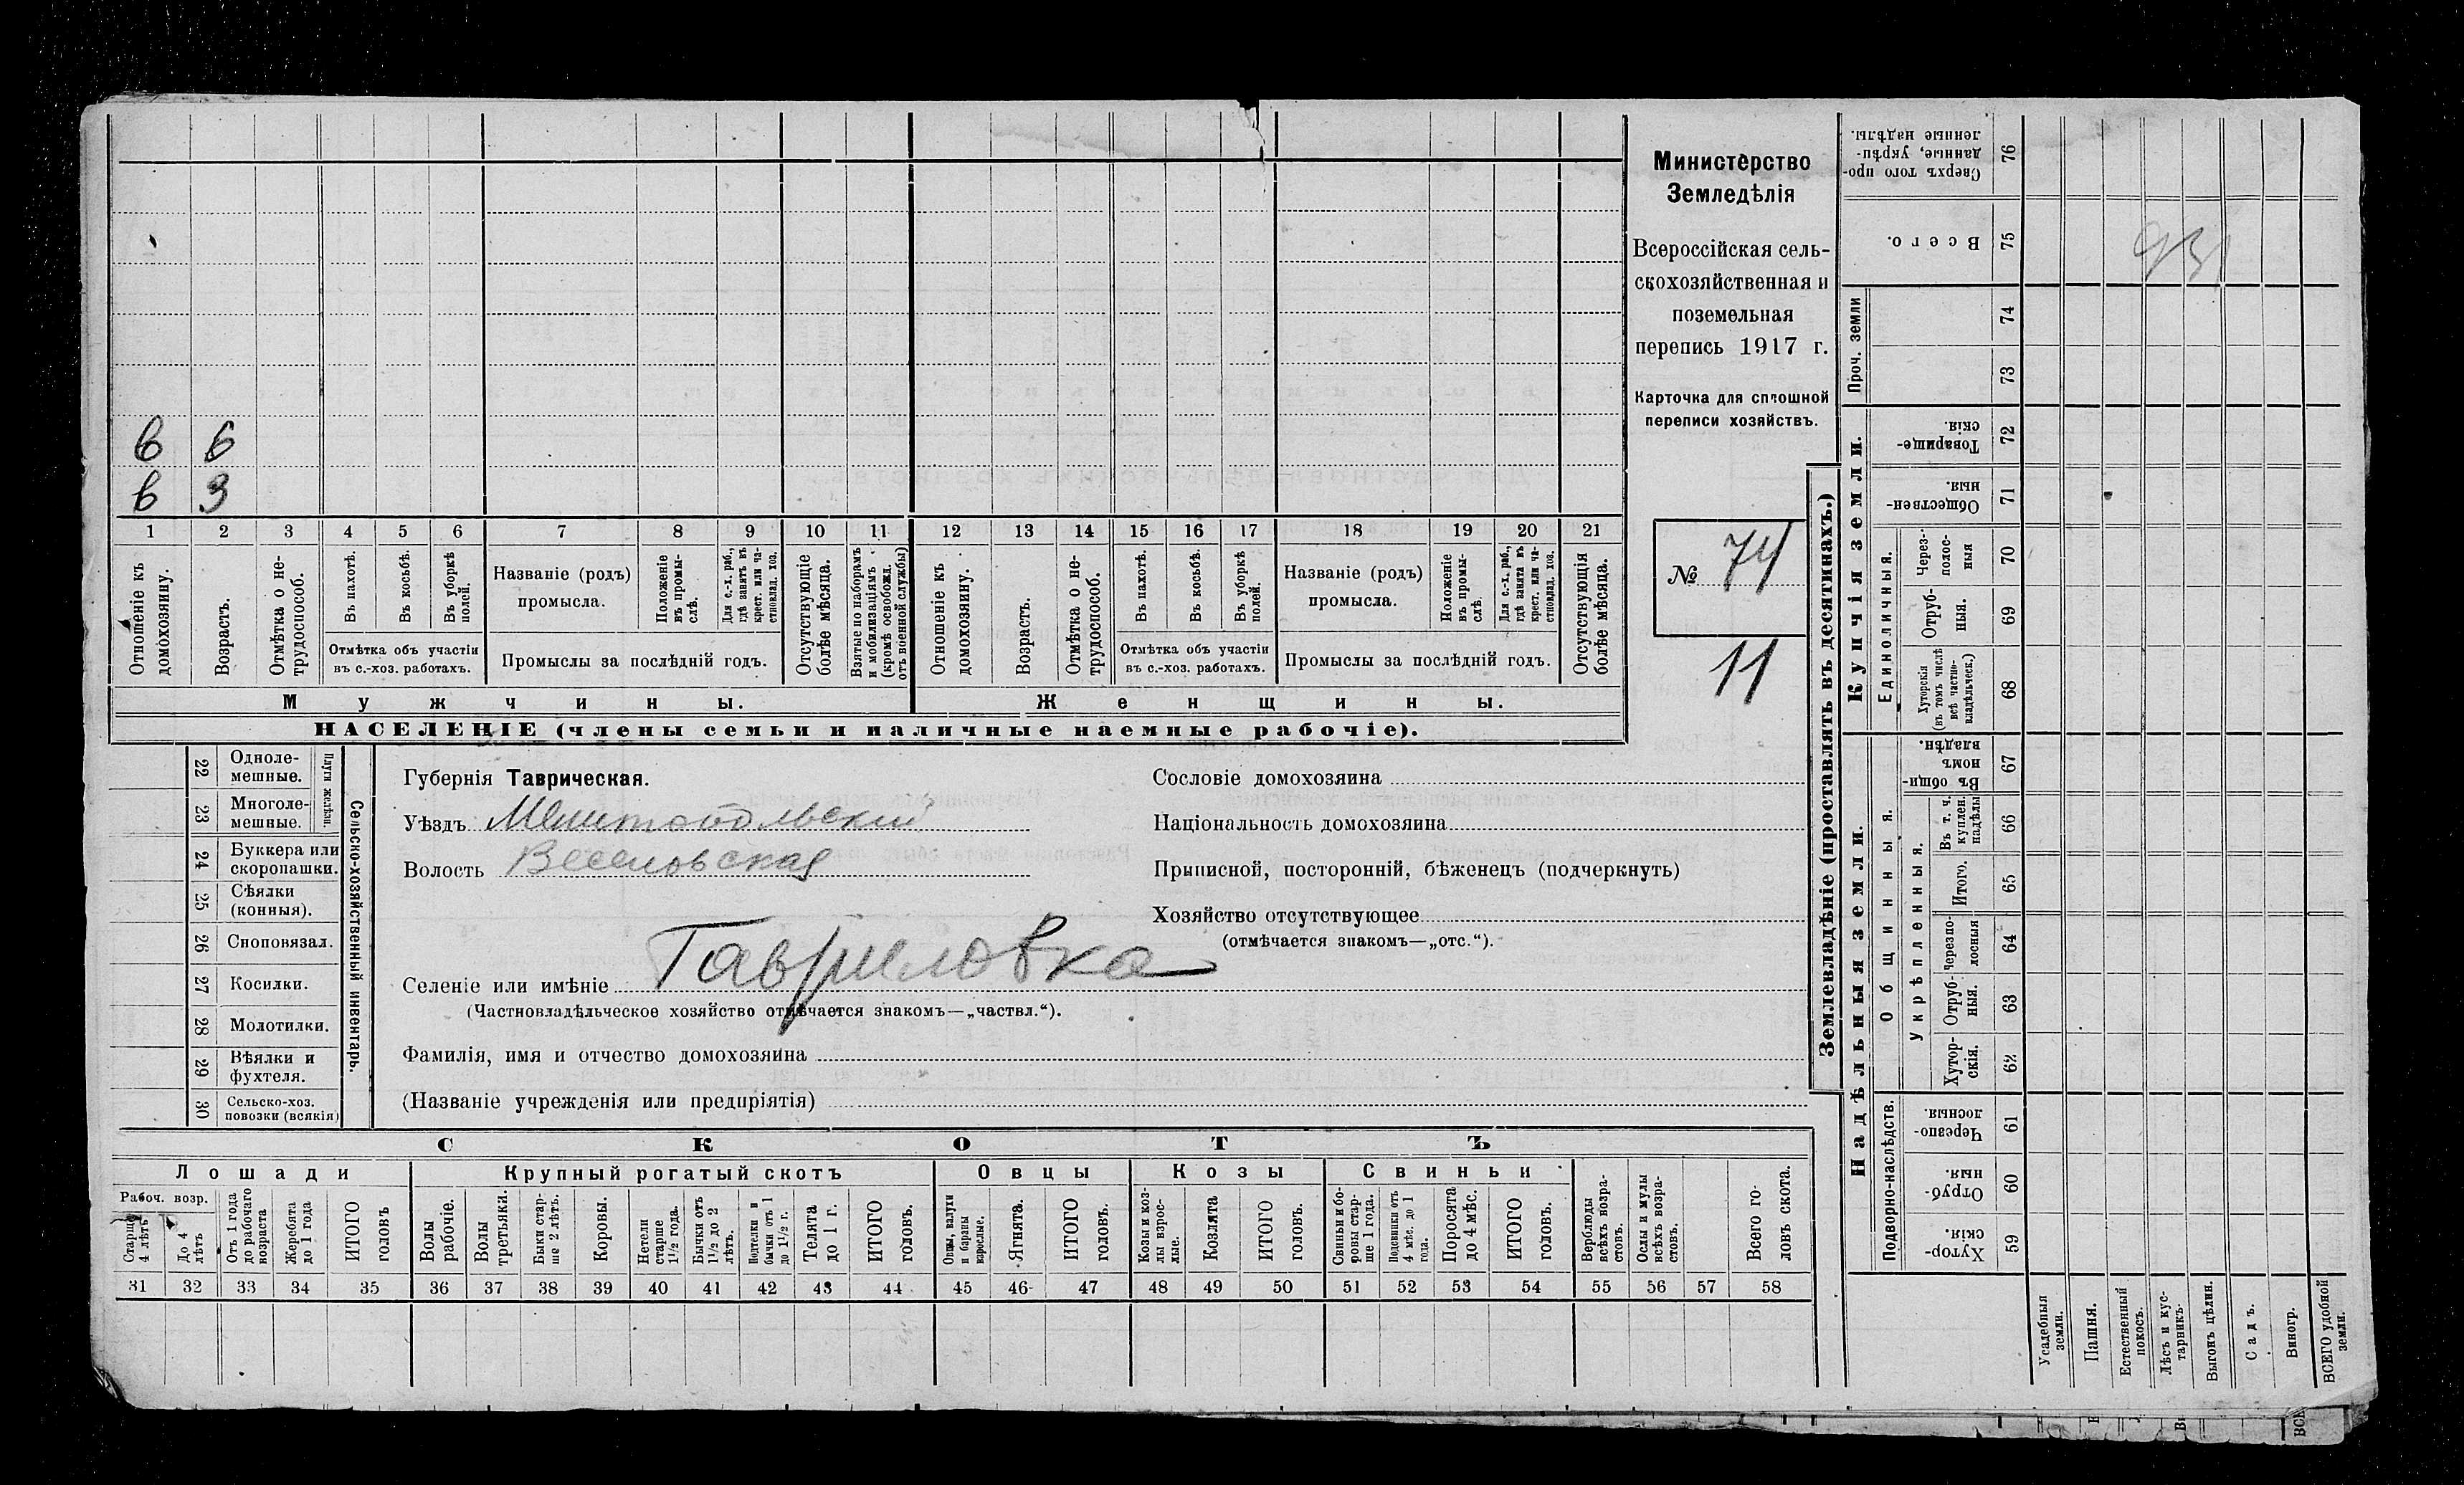 Министерство
Земледѣлія
Всероссійская сель-
скохозяйственная и
поземельная
перепись 1917 г.
Карточка для сплошной
переписи хозяйствъ.
№ 74
11
6 6
6 3
1 2 3 4 5 6 7 8 9 10 11 12 13 14 15 16 17 18 19 20 21
Отношеніе къ домохозяину.
Возрастъ.
Отмѣтка о не-трудоспособ.
Въ пахотѣ.
Въ косьбѣ.
Въ уборкѣ полей.
Отмѣтка объ участіи
въ с.-хоз. работахъ.
Названіе (родъ)
промысла.
Положеніе въ промы-слѣ.
Для с.-х. раб., гдѣ занятъ въ крест. или ча-стновлад. хоз.
Промыслы за послѣдній годъ.
Отсутствующіе болѣе мѣсяца.
Взятые по наборамъ и мобилизаціямъ (кромѣ освобожд. отъ военной службы)
Отношеніе къ домохозяину.
Возрастъ.
Отмѣтка о не-трудоспособ.
Въ пахотѣ.
Въ косьбѣ.
Въ уборкѣ полей.
Отмѣтка объ участіи
въ с.-хоз. работахъ.
Названіе (родъ)
промысла.
Положеніе въ промы-слѣ.
Для с.-х. раб., гдѣ занята въ крест. или ча-стновлад. хоз.
Промыслы за послѣдній годъ.
Отсутствующія болѣе мѣсяца.
Мужчины. Женщины.
НАСЕЛЕНІЕ (члены семьи и наличные наемные рабочіе).
22 Одноле-мешные.
23 Многоле-мешные.
Плуги желѣзн.
24 Буккера или скоропашки.
25 Сѣялки (конныя).
26 Сноповязал.
27 Косилки.
28 Молотилки.
29 Вѣялки и фухтеля.
30 Сельско-хоз. повозки (всякія)
Сельско-хозяйственный инвентарь.
Губернія Таврическая.
Уѣздъ Мелитопольскій
Волость Веселовская
Селеніе или имѣніе Гавриловка
(Частновладѣльческое хозяйство отмѣчается знакомъ—„частвл.“).
Фамилія, имя и отчество домохозяина
(Названіе учрежденія или предпріятія)
Сословіе домохозяина
Національность домохозяина
Приписной, посторонній, бѣженецъ (подчеркнуть)
Хозяйство отсутствующее
(отмѣчается знакомъ—„отс.“).
СКОТЪ
Лошади Крупный рогатый скотъ Овцы Козы Свиньи
Рабоч. возр.
Старше 4 лѣтъ
До 4 лѣтъ
Отъ 1 года до рабочаго возраста
Жеребята до 1 года
ИТОГО головъ
Волы рабочіе.
Волы третьяки.
Быки стар-ше 2 лѣтъ.
Коровы.
Нетели старше 1½ года.
Бычки отъ 1½ до 2 лѣтъ.
Подтелки и бычки отъ 1 до 1½ г.
Телята до 1 г.
ИТОГО головъ.
Овцы, валухи и бараны взрослые.
Ягнята.
ИТОГО головъ.
Козы и коз-лы взрос-лые.
Козлята
ИТОГО головъ.
Свиньи и бо-ровы стар-ше 1 года.
Подсвинки отъ 4 мѣс. до 1 года.
Поросята до 4 мѣс.
ИТОГО головъ.
Верблюды всѣхъ возра-стовъ.
Ослы и мулы всѣхъ возра-стовъ.
Всего го-ловъ скота.
31 32 33 34 35 36 37 38 39 40 41 42 43 44 45 46 47 48 49 50 51 52 53 54 55 56 57 58
Землевладѣніе (проставлять въ десятинахъ.)
76 Сверхъ того про-данные, укрѣп-ленные надѣлы.
75 Всего.
931
Проч. земли
74
73
Купчія земли.
72 Товарище-скія.
71 Обществен-ныя.
Единоличныя.
70 Через-полос-ныя
69 Отруб-ныя.
68 Хуторскія (въ томъ числѣ всѣ частно-владѣльческ.)
Надѣльныя земли.
Общинныя.
67 Въ общи-номъ владѣн.
Укрѣпленныя.
66 Въ т. ч. куплен. надѣлы
65 Итого.
64 Черезпо-лосныя
63 Отруб-ныя.
62 Хутор-скія.
Подворно-наслѣдств.
61 Черезпо-лосныя.
60 Отруб-ныя.
59 Хутор-скія.
Усадебныя земли.
Пашня.
Естественный покосъ.
Лѣсъ и кус-тарникъ.
Выгонъ цѣлин.
Садъ.
Виногр.
ВСЕГО удобной земли.